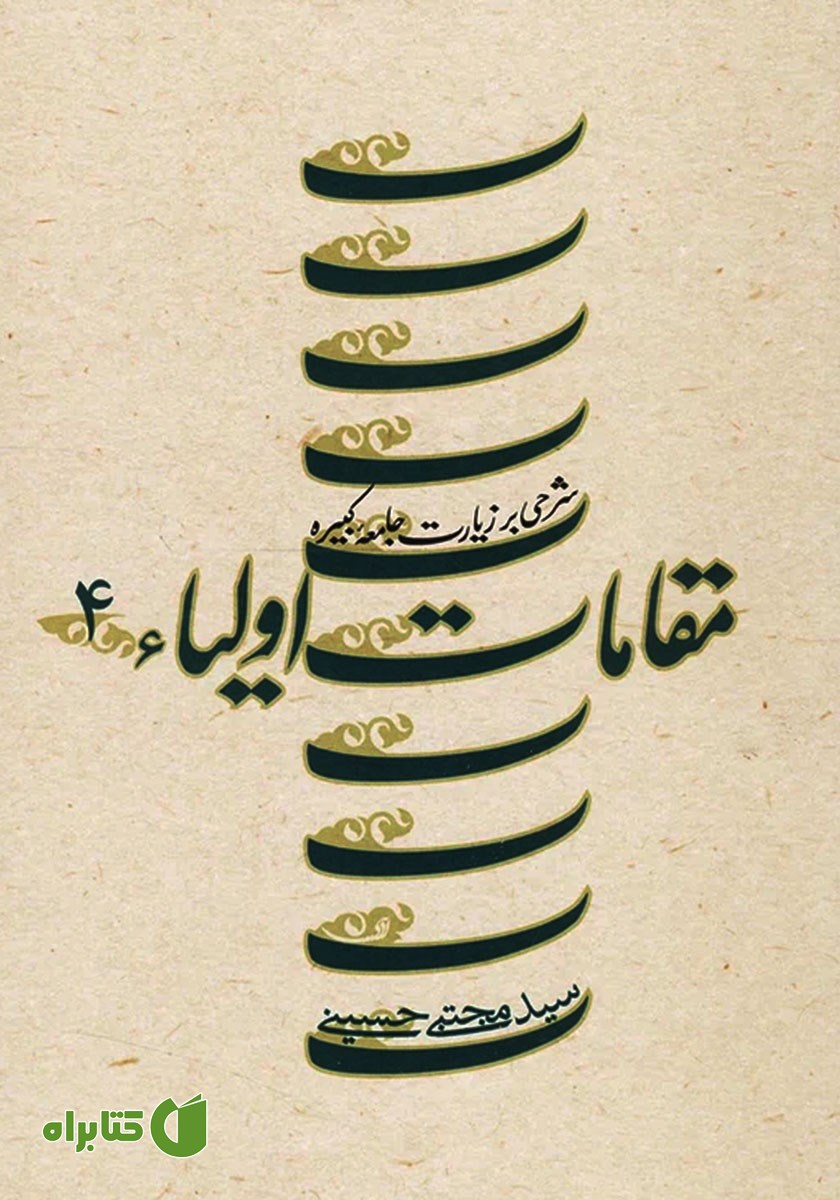 شرحی بر زیارت جامعهٔ کبیره
مقامات اولیاء ۴
سید مجتبی حسینی
کتابراه